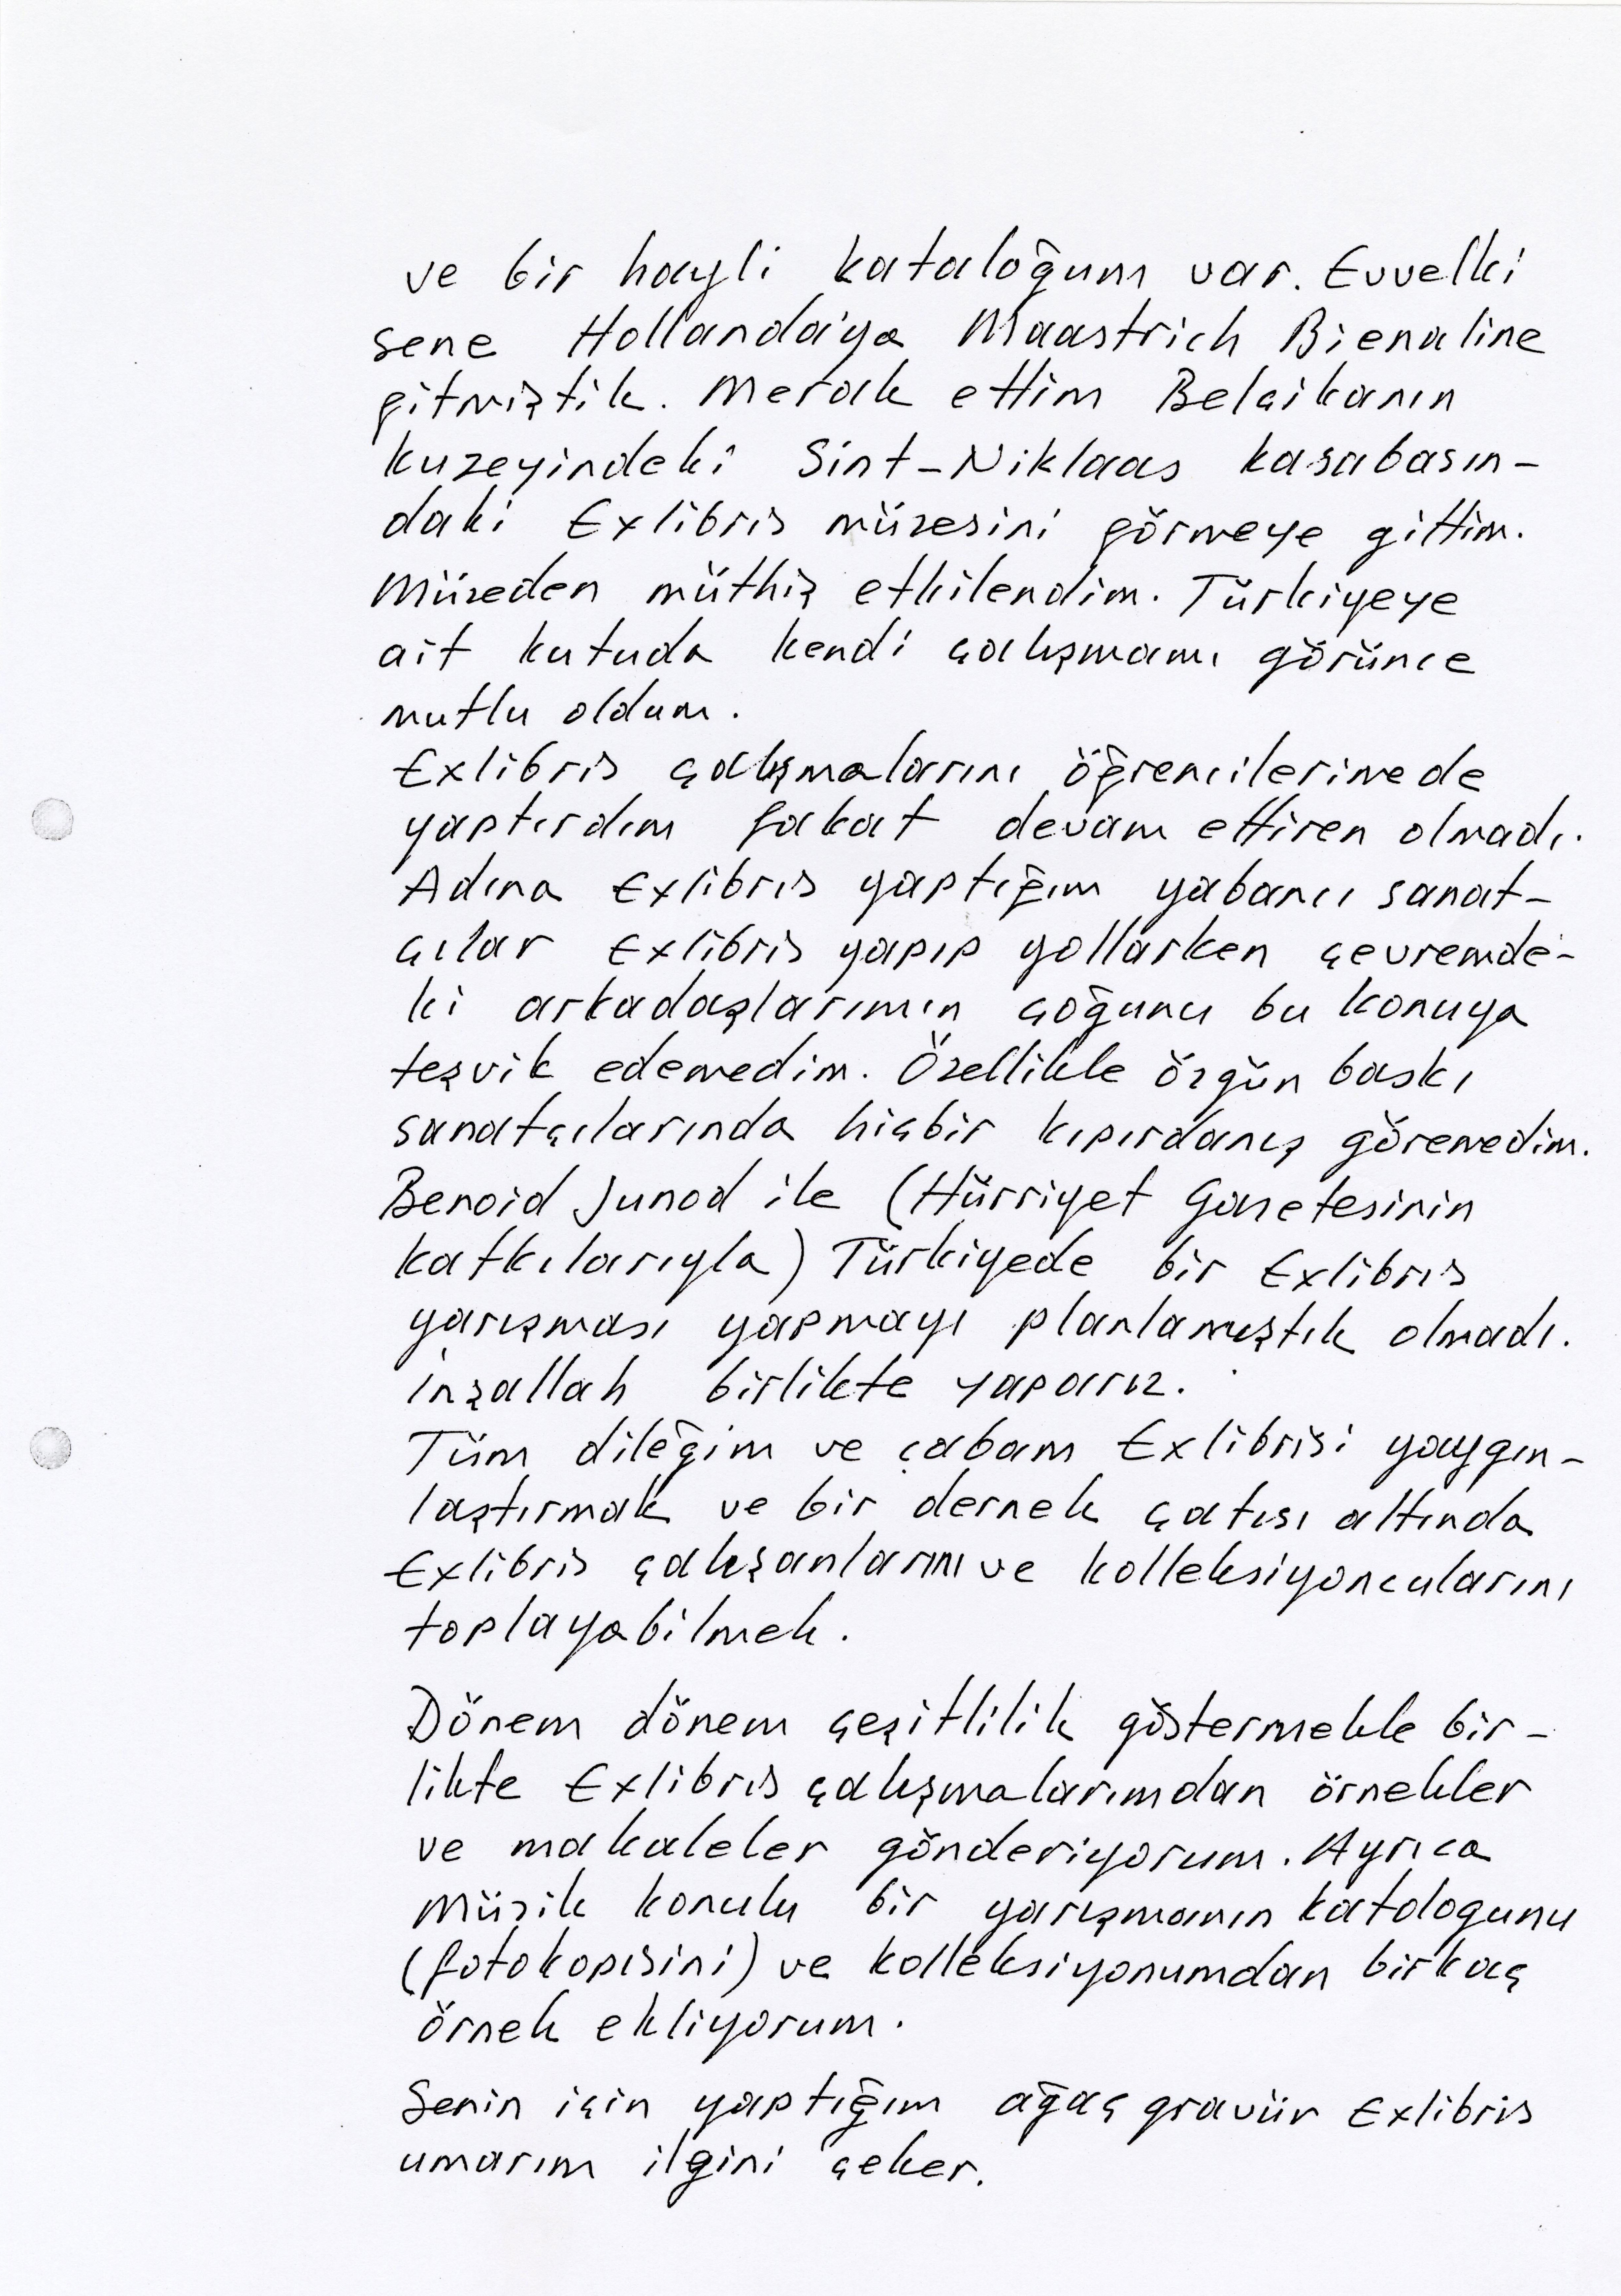 ve bir hayli kataloğum var. Evvelki
sene Hollanda'ya Maastrich Bienaline
gitmiştik. Merak ettim Belçikanın
kuzeyindeki Sint-Niklaas kasabasın-
daki Exlibris müzesini görmeye gittim.
Müzeden müthiş etkilendim. Türkiyeye
ait kutuda kendi çalışmamı görünce
mutlu oldum.
Exlibris çalışmalarını öğrencilerimede
yaptırdım fakat devam ettiren olmadı.
Adına Exlibris yaptığım yabancı sanat-
çılar Exlibris yapıp yollarken çevremde-
ki arkadaşlarımın çoğunu bu konuya
teşvik edemedim. Özellikle özgün baskı
sanatçılarında hiçbir kıpırdanış göremedim.
Benoid Junod ile (Hürriyet Gazetesinin
katkılarıyla) Türkiyede bir Exlibris
yarışması yapmayı planlamıştık olmadı.
İnşallah birlikte yaparız.
Tüm dileğim ve çabam Exlibrisi yaygın-
laştırmak ve bir dernek çatısı altında
Exlibris çalışanlarını ve kolleksiyoncularını
toplayabilmek.
Dönem dönem çeşitlilik göstermekle bir-
likte Exlibris çalışmalarımdan örnekler
ve makaleler gönderiyorum. Ayrıca
Müzik konulu bir yarışmanın katologunu
(fotokopisini) ve kolleksiyonumdan birkaç
örnek ekliyorum.
Senin için yaptığım ağaç gravür Exlibris
umarım ilgini çeker.